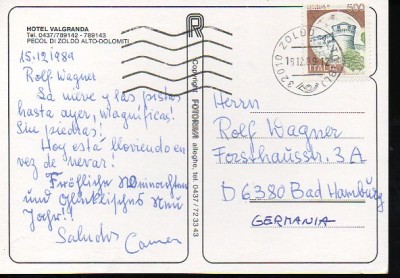 HOTEL VALGRANDA
Tel. 0437/789142 - 789143
PECOL DI ZOLDO ALTO-DOLOMITI
15.12.1989
Rolf Wagner
La nieve y las pistas
hasta ayer, magnificas!
Sin piedras!
Hoy está lloviendo en
vez de nevar!
Fröhliche Weinnachten
und glückliches Neu
Jahr!!
Saludos
Carmen
R
Copyright FOTORIVA alleghe, tel. 0437/723343
500
ITALIA
32010 ZOLDO
Herrn
Rolf Wagner
Forsthausstr. 3A
D 6380 Bad Hamburg
GERMANIA